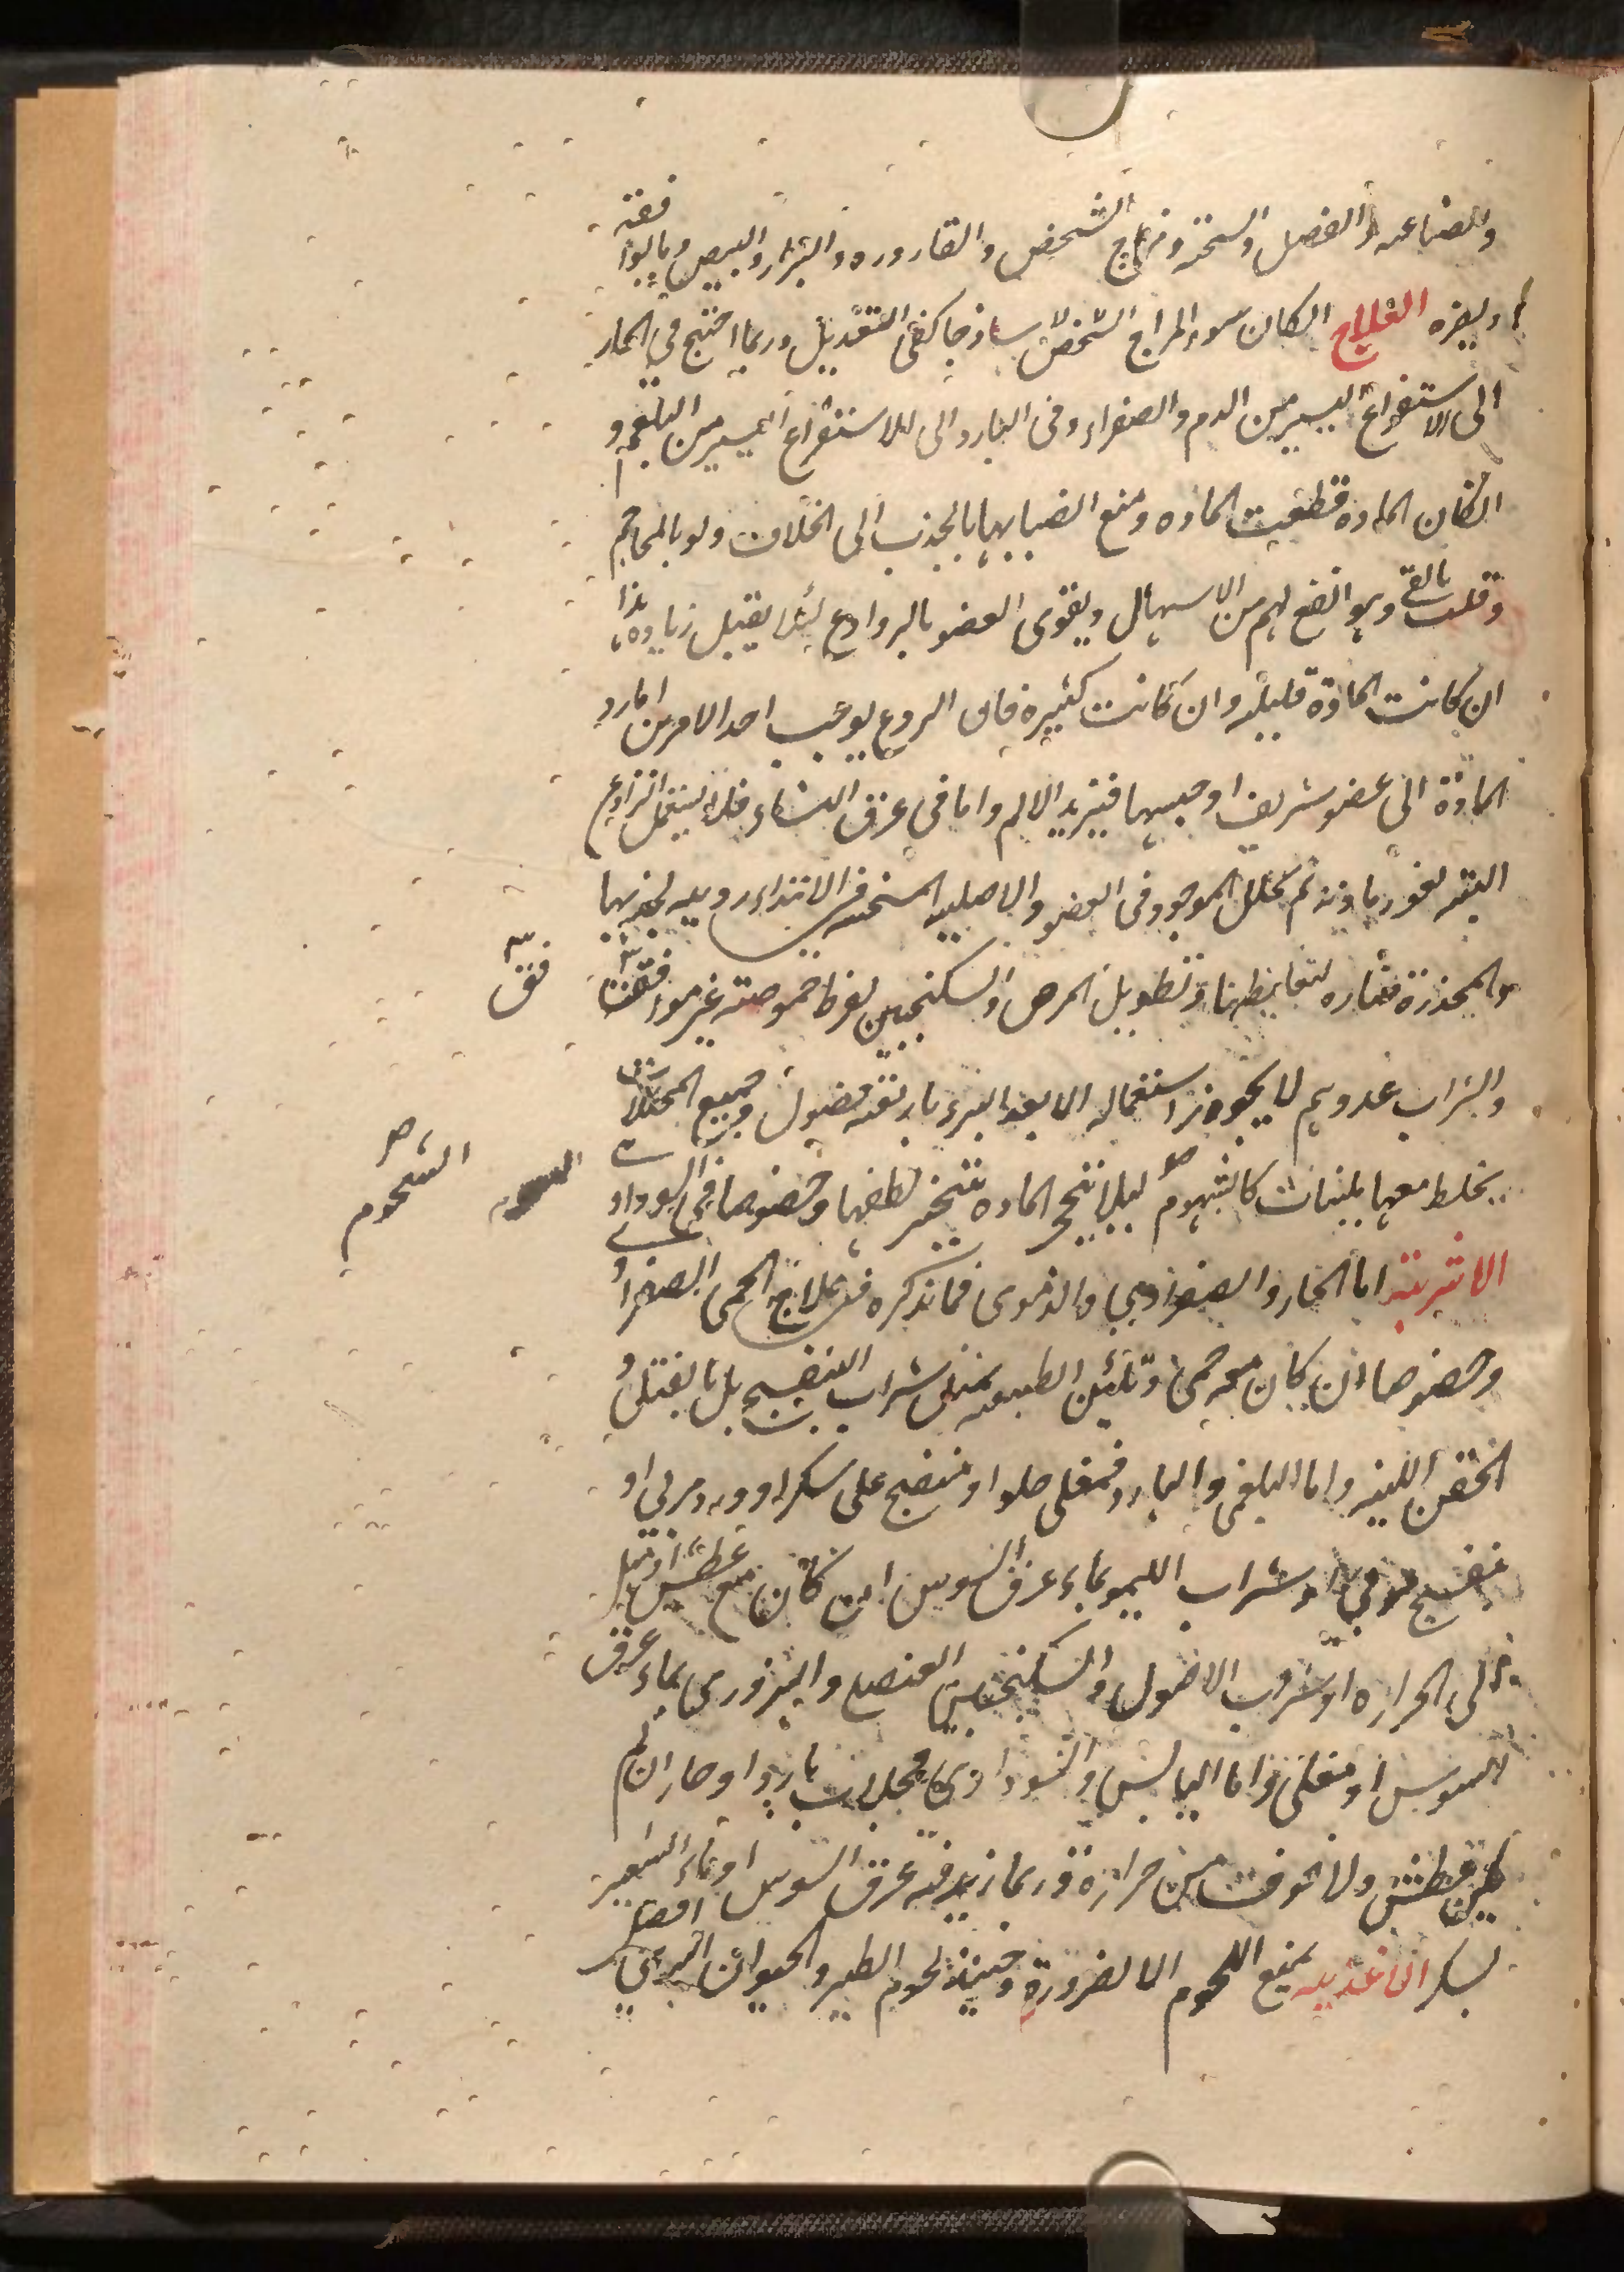 والصناعه والفصل والسحنه ومزاج الشخص والقاروره والبثار والبيض وما يوافقه
او يضره العلاج ان كان سوء المزاج الشخص ساذجا كفى التعديل وربما احتيج في الحار
الى الاستفراغ اليسير من الدم والصفراء وفى البارد الى الاستفراغ اليسير من البلغم و
ان كان المادة قطعت الماده ومنع انصبابها بالجذب الى الخلاف ولو بالمحاجم
وقلت بالقئ وهو انفع لهم من الاسهال ويقوى العضو بالروادع لئلا يقبل زياده هذا
ان كانت المادة قليله وان كانت كثيره فان الردع يوجب احد الامرين اما رد
المادة الى عضو شريف او حبسها فيزيد الالم واما فى عرق النساء فلا يستعمل الرادع
البته لغور مادته ثم تحلل الموجود فى العضو والاصليه المسخنه فى الابتداء رديه لجذبها
والمخدرة ضاره لتغليظها وتطويل المرض والسكنجبين لفرط حموصته غير موافقة
فقة
والشراب عدو لهم لا يجوز استعماله الا بعد البرء باربعة فصول وجميع المحللات
يخلط معها ملينات كالشهوم ليلا تتحجر الماده بتبخر لطفها وخصوصا فى السوداوى
الشحوم
الاشربة اما الحار والصفراوى والدموى فما نذكره فى علاج الحمى الصفراو
وخصوصا ان كان معه حمى وتليين الطبيعه بمثل شراب البنفسج بل بالفتل و
الحقن اللينه واما البلغمى والبارد فمغلى حلو او منضج على سكر او ورد مربى او
بنفسج مربى او شراب الليمو بماء عرق السوس ان كان مع عطش او ميل
الى الحراره او شراب الاصول والسكنجبين العنصلى والبزورى بماء عرق
السوس او مغلى واما اليابس والسوداوى فجلاب باردا وحارا ان لم
يكن عطش ولا خوف من حراره وربما زيد فيه عرق السوس او ماء الشعير
بسكر الاغذيه يمنع اللحوم الا لضرورة وحينئذ لحوم الطير والحيوان البرى افضل